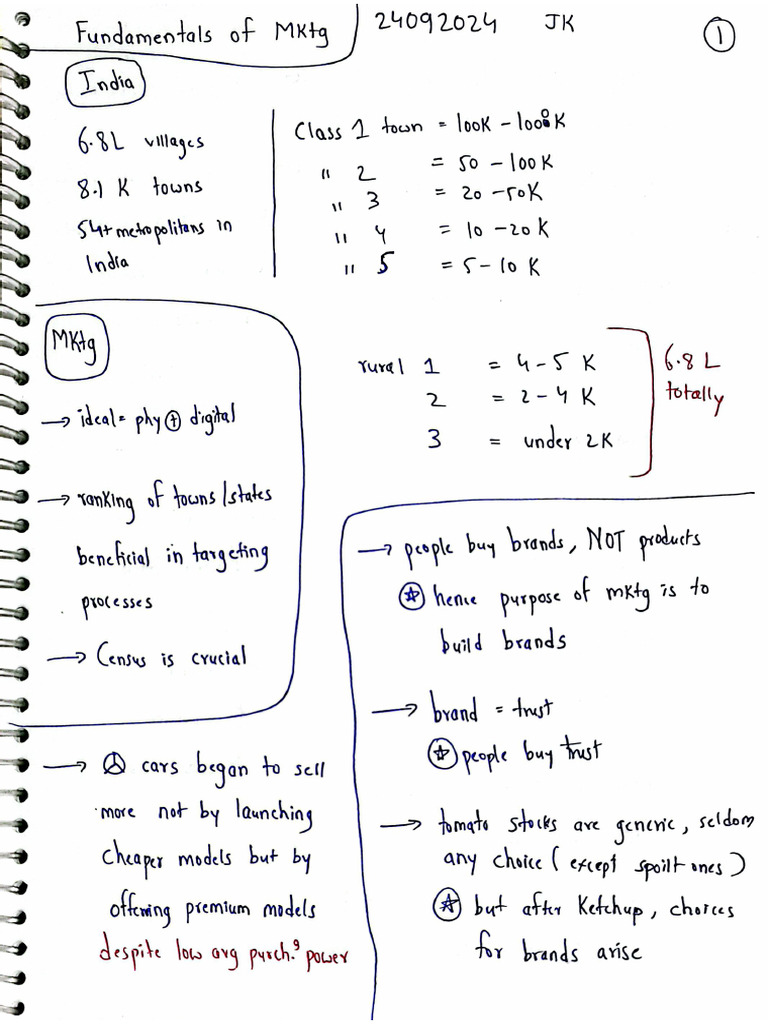 Fundamentals of Mktg
24092024 JK
1
India
6.8L villages
8.1 K towns
54+ metropolitans in
India
Class 1 town = 100K - 1000K
" 2 = 50 - 100K
" 3 = 20 - 50K
" 4 = 10 - 20K
" 5 = 5 - 10 K
Mktg
→ ideal = phy ⊕ digital
→ ranking of towns/states
beneficial in targeting
processes
→ Census is crucial
rural 1 = 4 - 5 K
2 = 2 - 4 K
3 = under 2K
6.8 L
totally
→ cars began to sell
more not by launching
cheaper models but by
offering premium models
despite low avg purch.g power
→ people buy brands, NOT products
☆ hence purpose of mktg is to
build brands
→ brand = trust
☆ people buy trust
→ tomato stocks are generic, seldom
any choice (except spoilt ones)
☆ but after Ketchup, choices
for brands arise